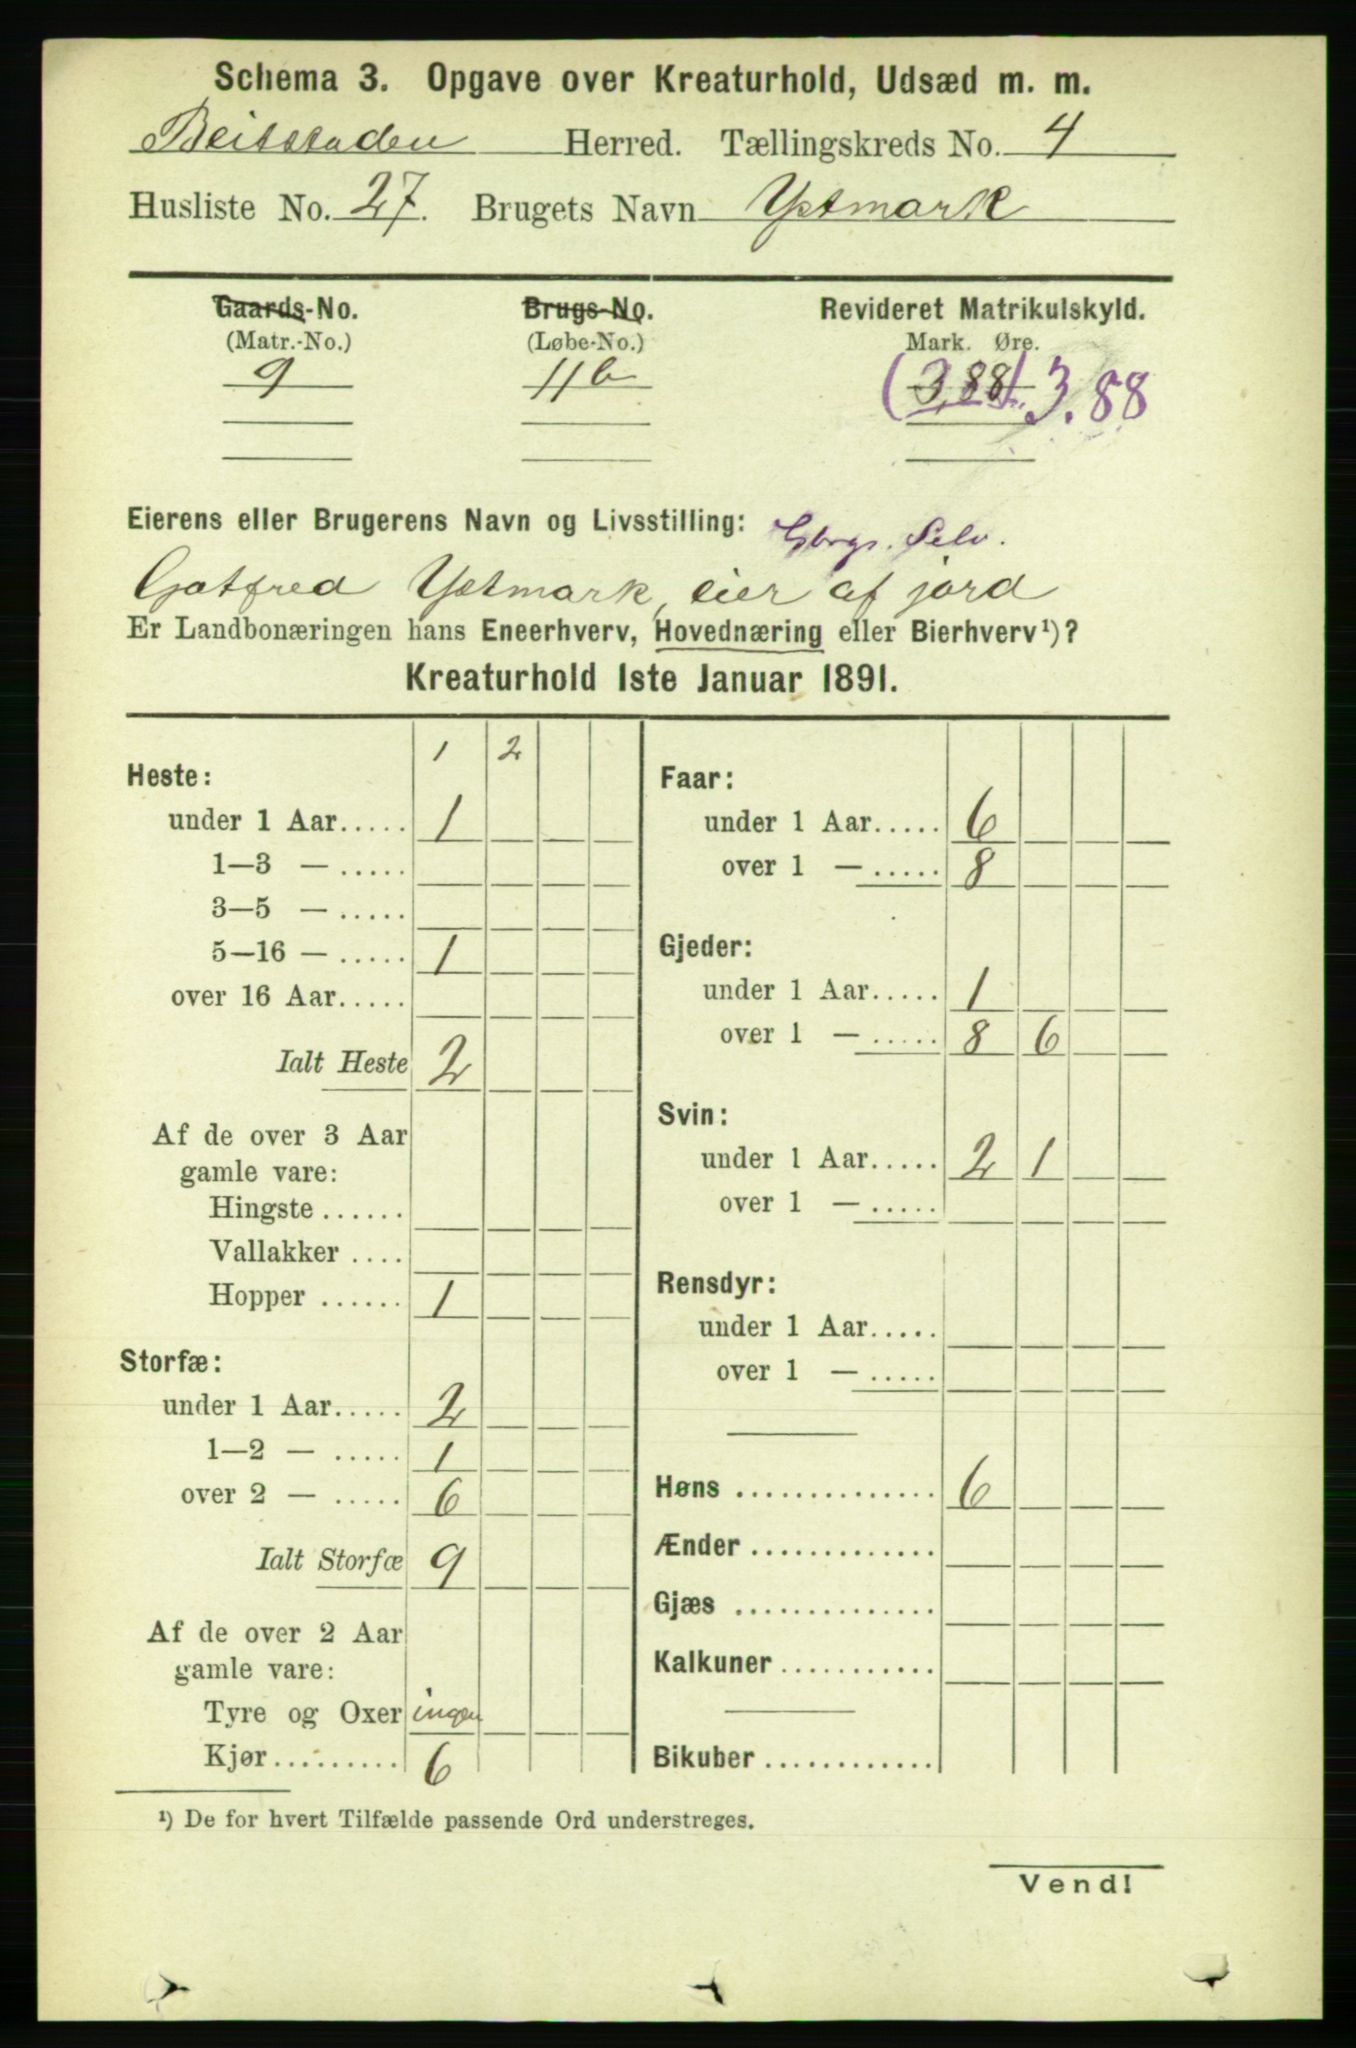 Schema 3. Opgave over Kreaturhold, Udsæd m. m.
Beitstaden Herred. Tællingskreds No. 4
Husliste No. 27. Brugets Navn Ystmark
Gaards-No. Brugs-No. Revideret Matrikulskyld.
(Matr.-No.) (Løbe-No.) Mark. Øre.
9 11b (3,88). 3.88
Eierens eller Brugerens Navn og Livsstilling: Gbrgr. Selv.
Gotfred Ystmark, eier af jord
Er Landbonæringen hans Eneerhverv, Hovednæring eller Bierhverv¹)?
Kreaturhold 1ste Januar 1891.
1 2
Heste:
under 1 Aar..... 1
1—3 — .....
3—5 — .....
5—16 — ..... 1
over 16 Aar.....
Ialt Heste 2
Af de over 3 Aar
gamle vare:
Hingste ......
Vallakker ....
Hopper ...... 1
Storfæ:
under 1 Aar..... 2
1—2 — ..... 1
over 2 — ..... 6
Ialt Storfæ 9
Af de over 2 Aar
gamle vare:
Tyre og Oxer ingen
Kjør......... 6
Faar:
under 1 Aar..... 6
over 1 — ..... 8
Gjeder:
under 1 Aar..... 1
over 1 — ..... 8 6
Svin:
under 1 Aar..... 2 1
over 1 — .....
Rensdyr:
under 1 Aar.....
over 1 — .....
Høns .............. 6
Ænder .............
Gjæs ..............
Kalkuner ...........
Bikuber ............
¹) De for hvert Tilfælde passende Ord understreges.
Vend!